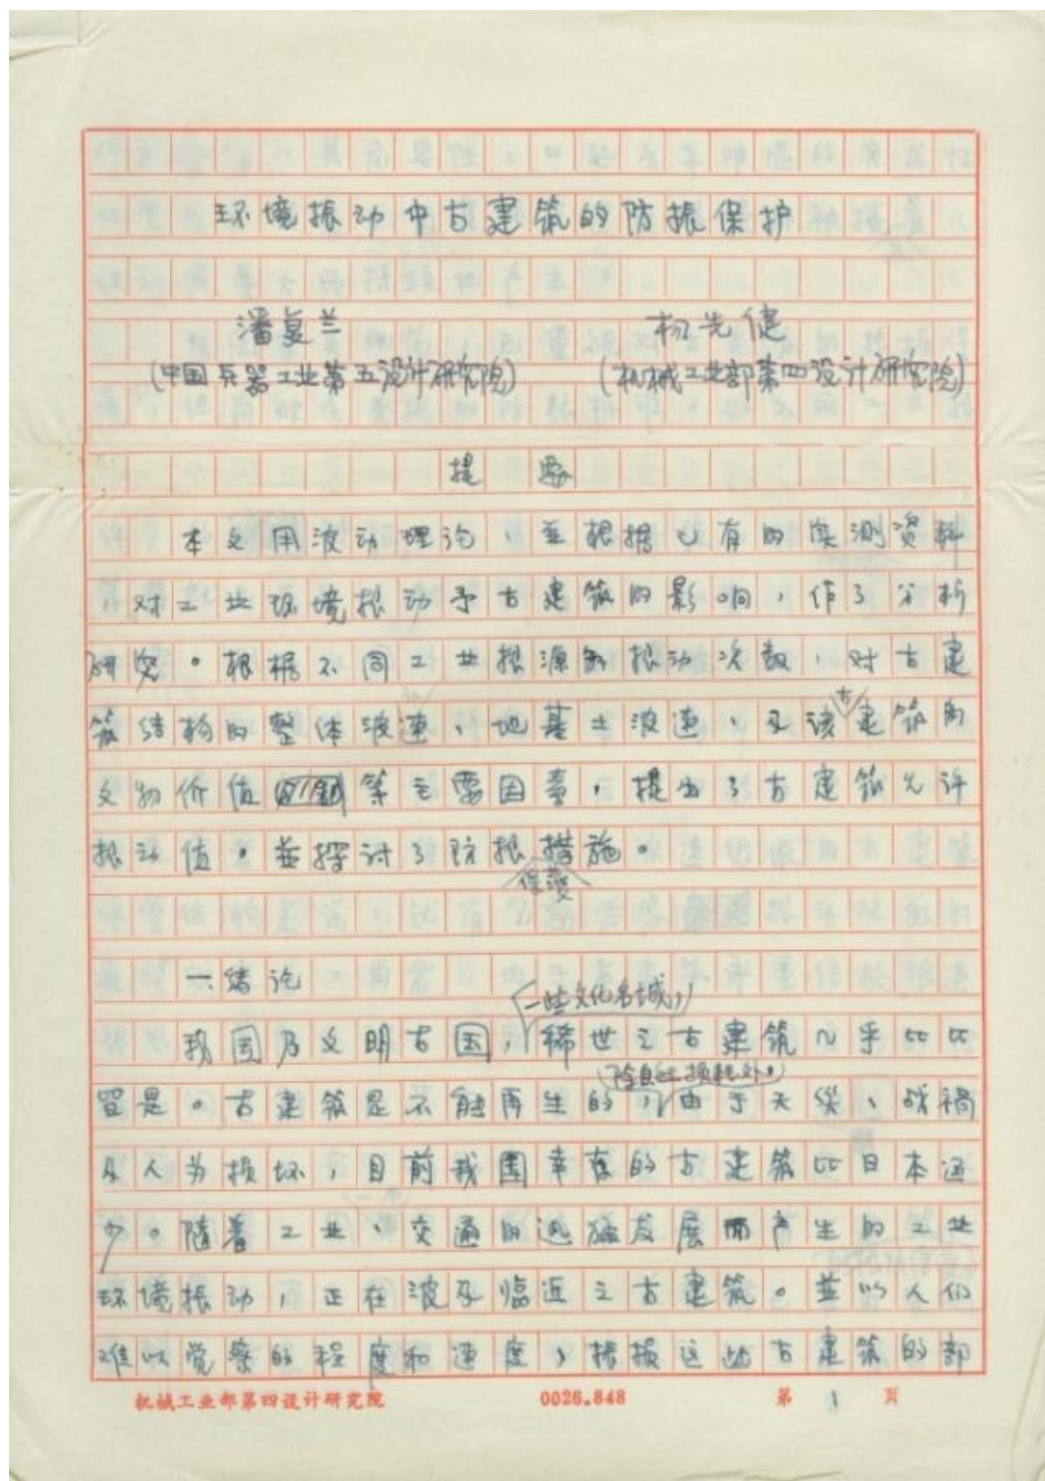 环境振动中古建筑的防振保护
潘复兰 杨先健
(中国兵器工业第五设计研究院) (机械工业部第四设计研究院)
提 要
本文用波动理论、并根据已有的实测资料
对工业环境振动予古建筑的影响,作了分析
研究。根据不同工业振源的振动次数,对古建
筑结构的整体波速、地基土波速、及该古建筑的
文物价值等主要因素,提出了古建筑允许
振动值。并探讨了防振保护措施。
一、绪论
我国乃文明古国,一些文化名城,稀世之古建筑几乎比比
皆是。古建筑是不能再生的,除自然损耗外,由于天灾、战祸
及人为损坏,目前我国幸存的古建筑比日本还
少。随着工业、交通的迅猛发展而产生的工业
环境振动,正在波及临近之古建筑。並以人们
难以觉察的程度和速度,振损这些古建筑的部
机械工业部第四设计研究院 0026.848 第 1 页